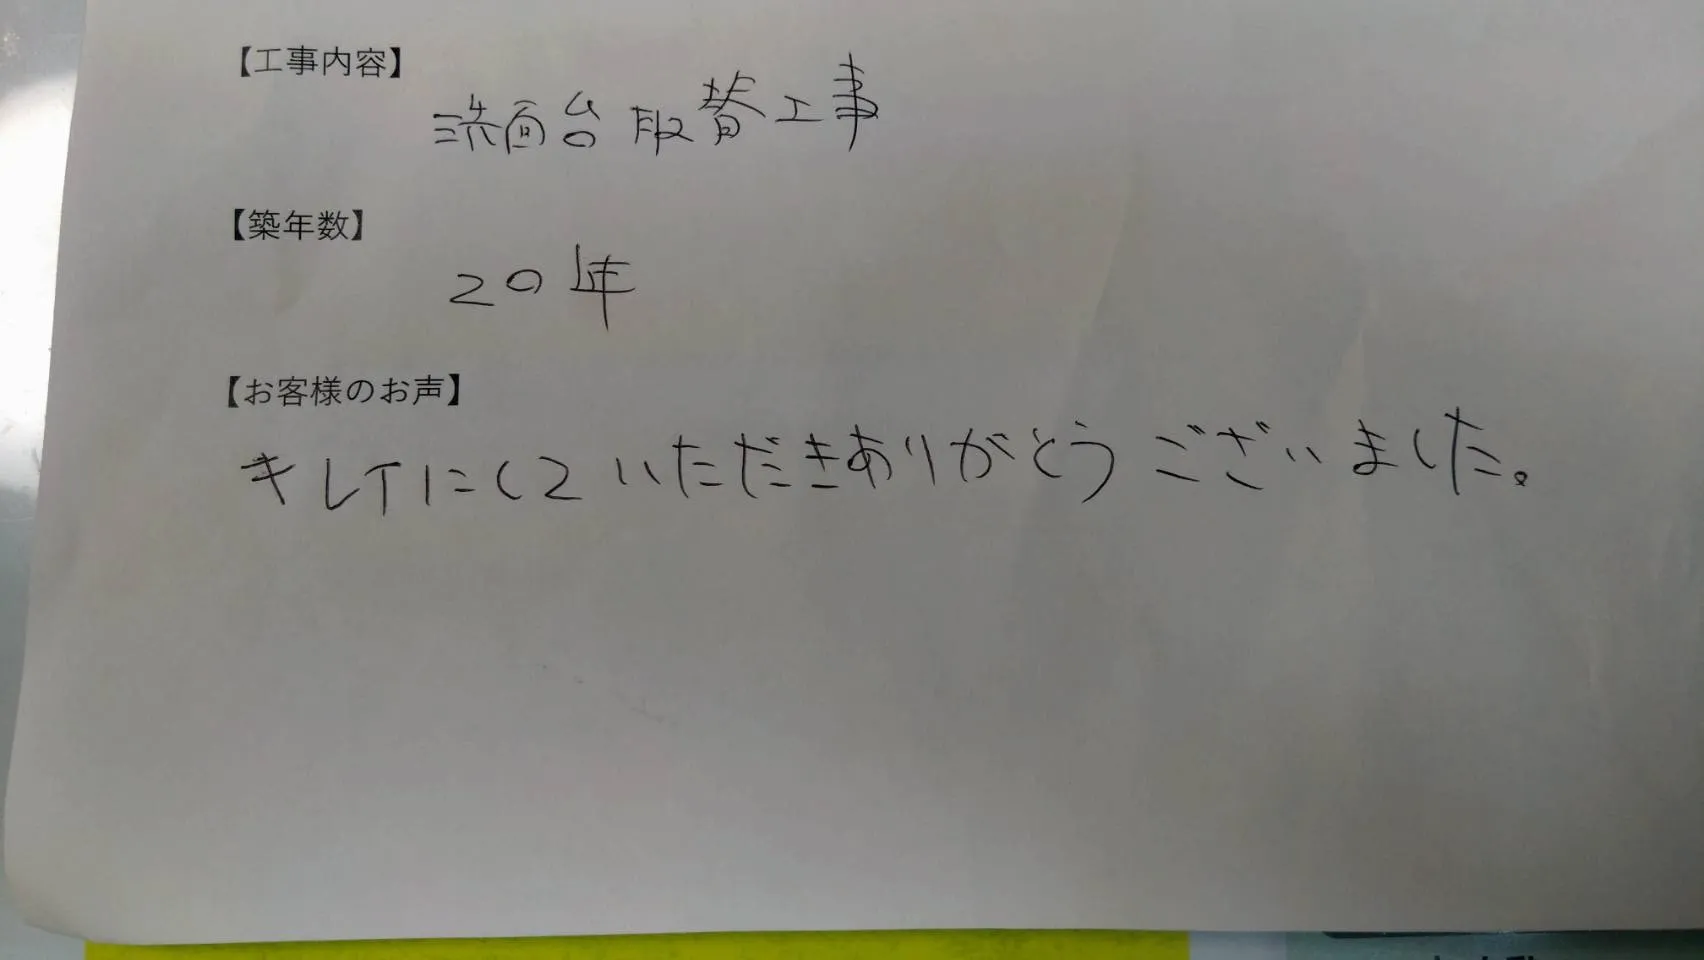 【工事内容】
洗面台取替工事
【築年数】
20年
【お客様のお声】
キレイにしていただきありがとうございました。